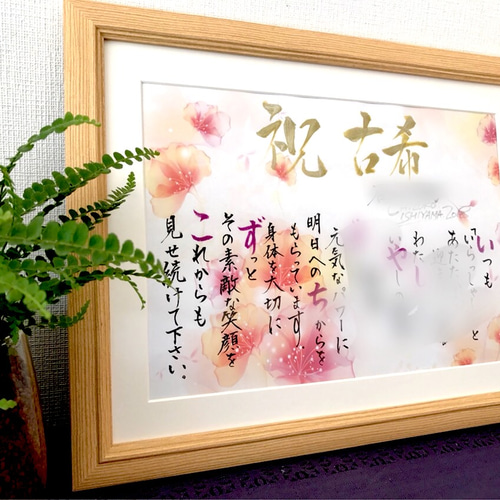 祝 古希
いつも
いらっしゃ と
あなた
わたし
いや し
元気なパワーに
明日へのちからを
もらっています。
身体を大切に
ずっと
その素敵な笑顔を
これからも
見せ続けて下さい。
ISHIYAMA